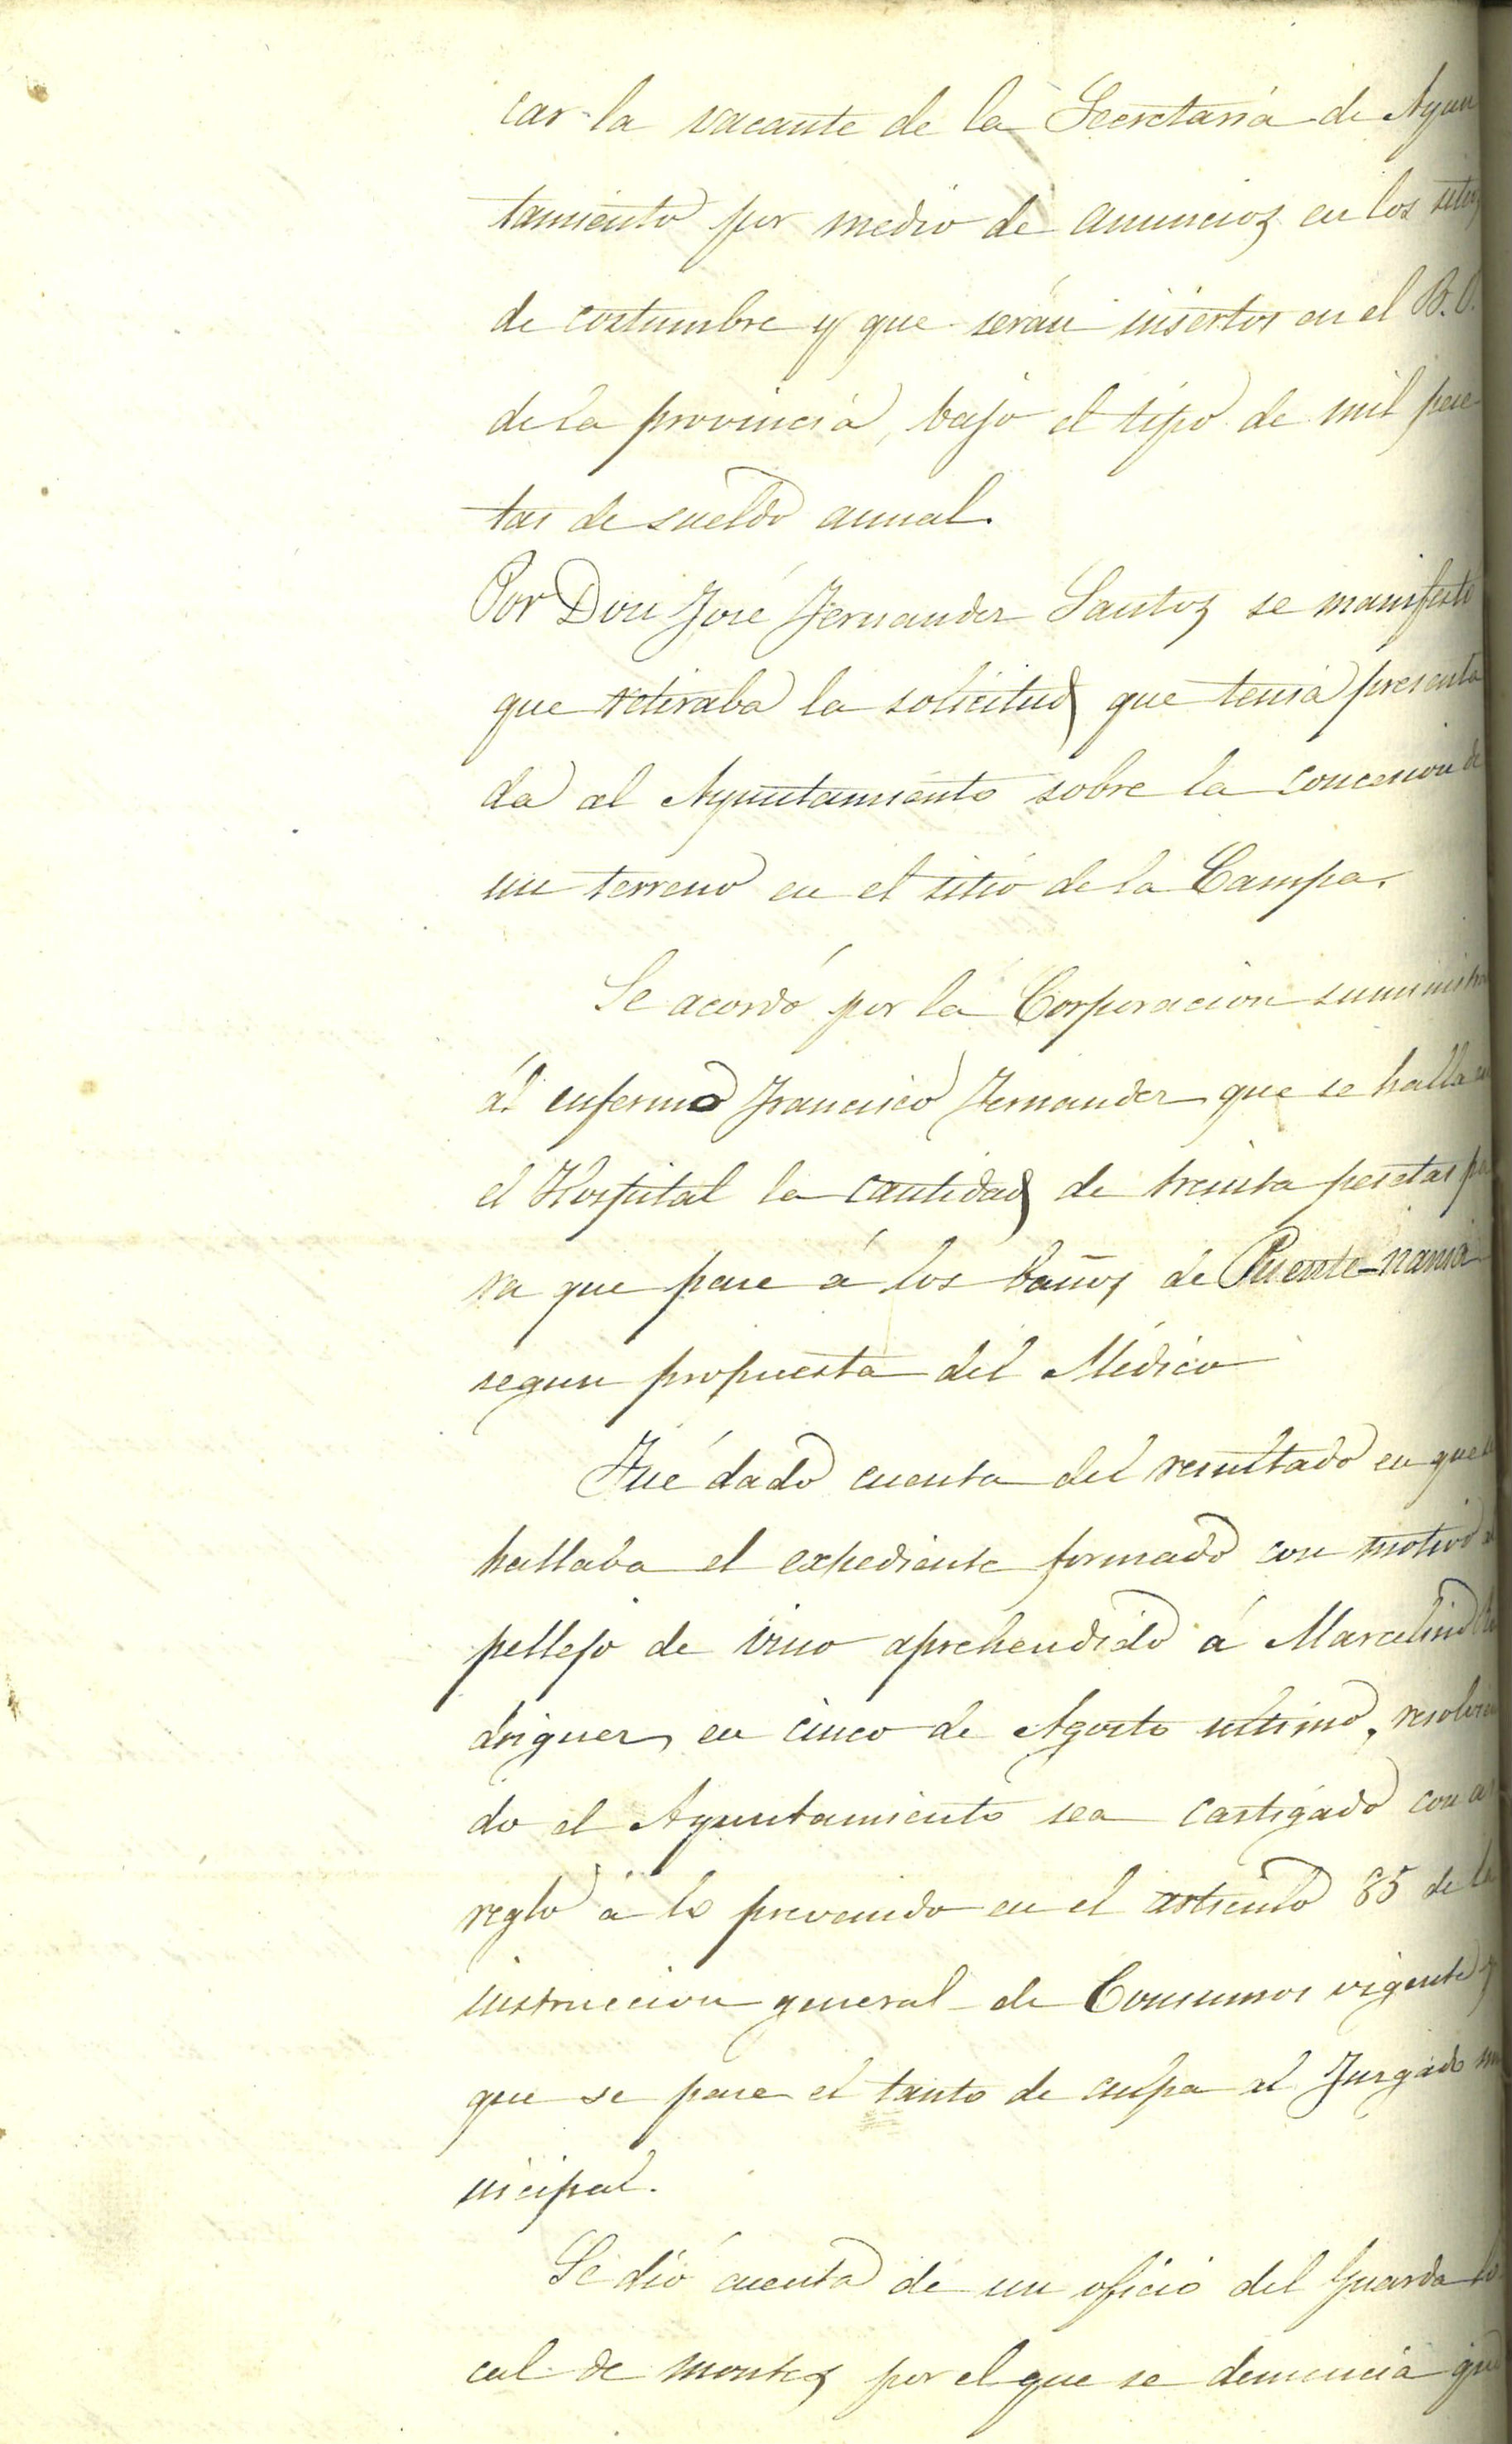 car la vacante de la Secretaria de Ayun
tamiento por medio de anuncios en los sitios
de costumbre y que serán insertos en el B.O.
de la provincia, bajo el tipo de mil pese
tas de sueldo annal.
Por Don José Fernandez Santos se manifestó
que retiraba la solicitud que tenia presenta
da al Ayuntamiento sobre la concesion de
un terreno en el sitio de la Campa.
Se acordó por la Corporacion suministrar
ál enfermo Francisco Fernandez que se halla en
el Hospital la cantidad de treinta pesetas pa
ra que pase á los baños de Puente-nansa
segun propuesta del Médico
Fué dado cuenta del resultado en que se
hallaba el expediente formado con motivo
pellejo de vino aprehendido á Marcelino Ro
driguez en cinco de Agosto ultimo, resolvien
do el Ayuntamiento sea castigado con ar
reglo á lo prevenido en el articulo 85 de la
instruccion general de Consumos vigente y
que se pase el tanto de culpa al Juzgado mu
nicipal.
Se dió cuenta de un oficio del Guarda lo
cal de montes por el que se denuncia que